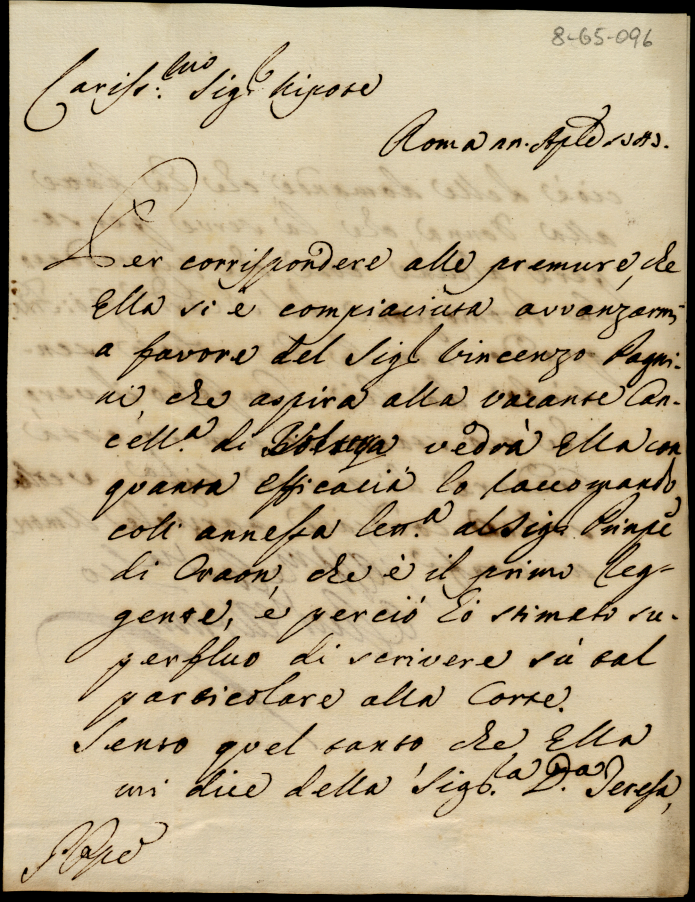 8-65-096
Cariss.mo Sig.r Nipote
Roma 11. Aple 1743.
Per corrispondere alle premure, che
Ella si è compiaciuta avvanzarmi
a favore del Sig.r Vincenzo Pagni-
ni, che aspira alla vacante Can-
cell.a di vedrà Ella con
quanta efficacia lo raccomando
coll annessa lett.a al Sig.r Prinpe
di Craon, che è il primo Reg-
gente, e perciò hò stimato su-
perfluo di scrivere sù tal
particolare alla Corte.
Sento quel tanto che Ella
mi dice della Sig.ra D.a Teresa,